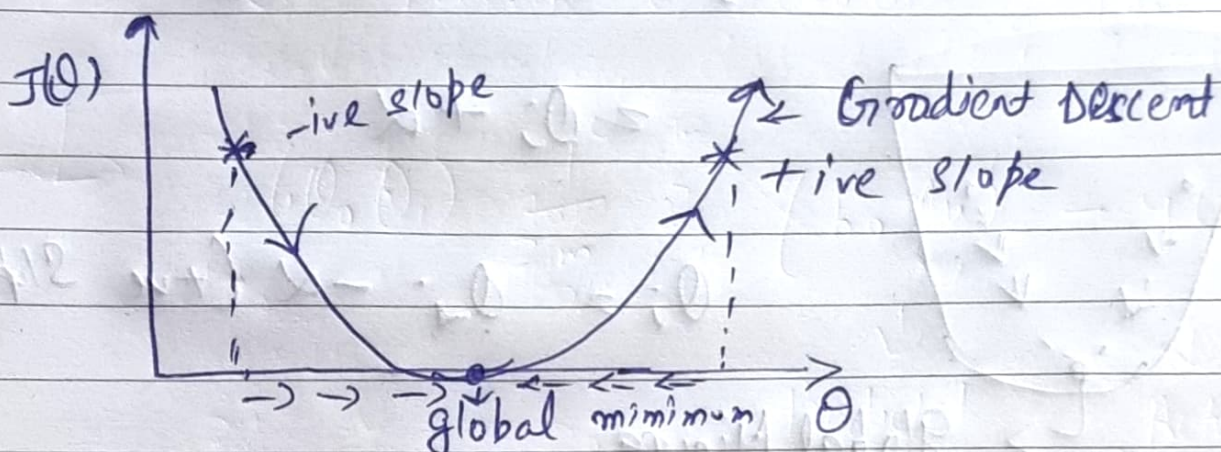 J(θ)
-ive slope
Gradient Descent
+ive slope
global minimum
θ